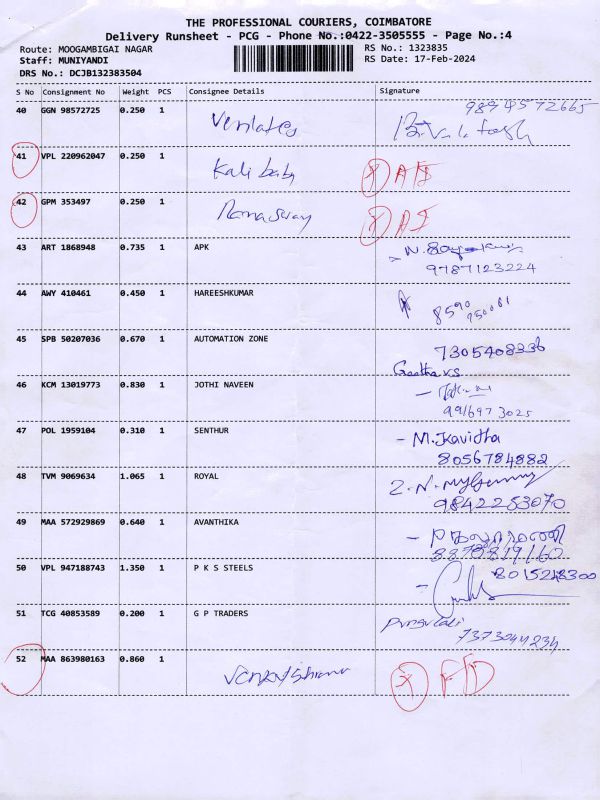 THE PROFESSIONAL COURIERS, COIMBATORE
Delivery Runsheet - PCG - Phone No.:0422-3505555 - Page No.:4
Route: MOOGAMBIGAI NAGAR RS No.: 1323835
Staff: MUNIYANDI RS Date: 17-Feb-2024
DRS No.: DCJB132383504
S No Consignment No Weight PCS Consignee Details Signature
40 GGN 98572725 0.250 1
41 VPL 220962047 0.250 1 Kali baby
42 GPM 353497 0.250 1 Ramasway
43 ART 1868948 0.735 1 APK
9787123224
44 AWY 410461 0.450 1 HAREESHKUMAR
45 SPB 50207036 0.670 1 AUTOMATION ZONE
7305408336
Geetha v.s
46 KCM 13019773 0.830 1 JOTHI NAVEEN
991697 3025
47 POL 1959104 0.310 1 SENTHUR - M. Kavitha
8056784882
48 TVM 9069634 1.065 1 ROYAL
9842253070
49 MAA 572929869 0.640 1 AVANTHIKA
8870819160
50 VPL 947188743 1.350 1 P K S STEELS 8015248300
51 TCG 40853589 0.200 1 G P TRADERS
7373044234
52 MAA 863980163 0.860 1